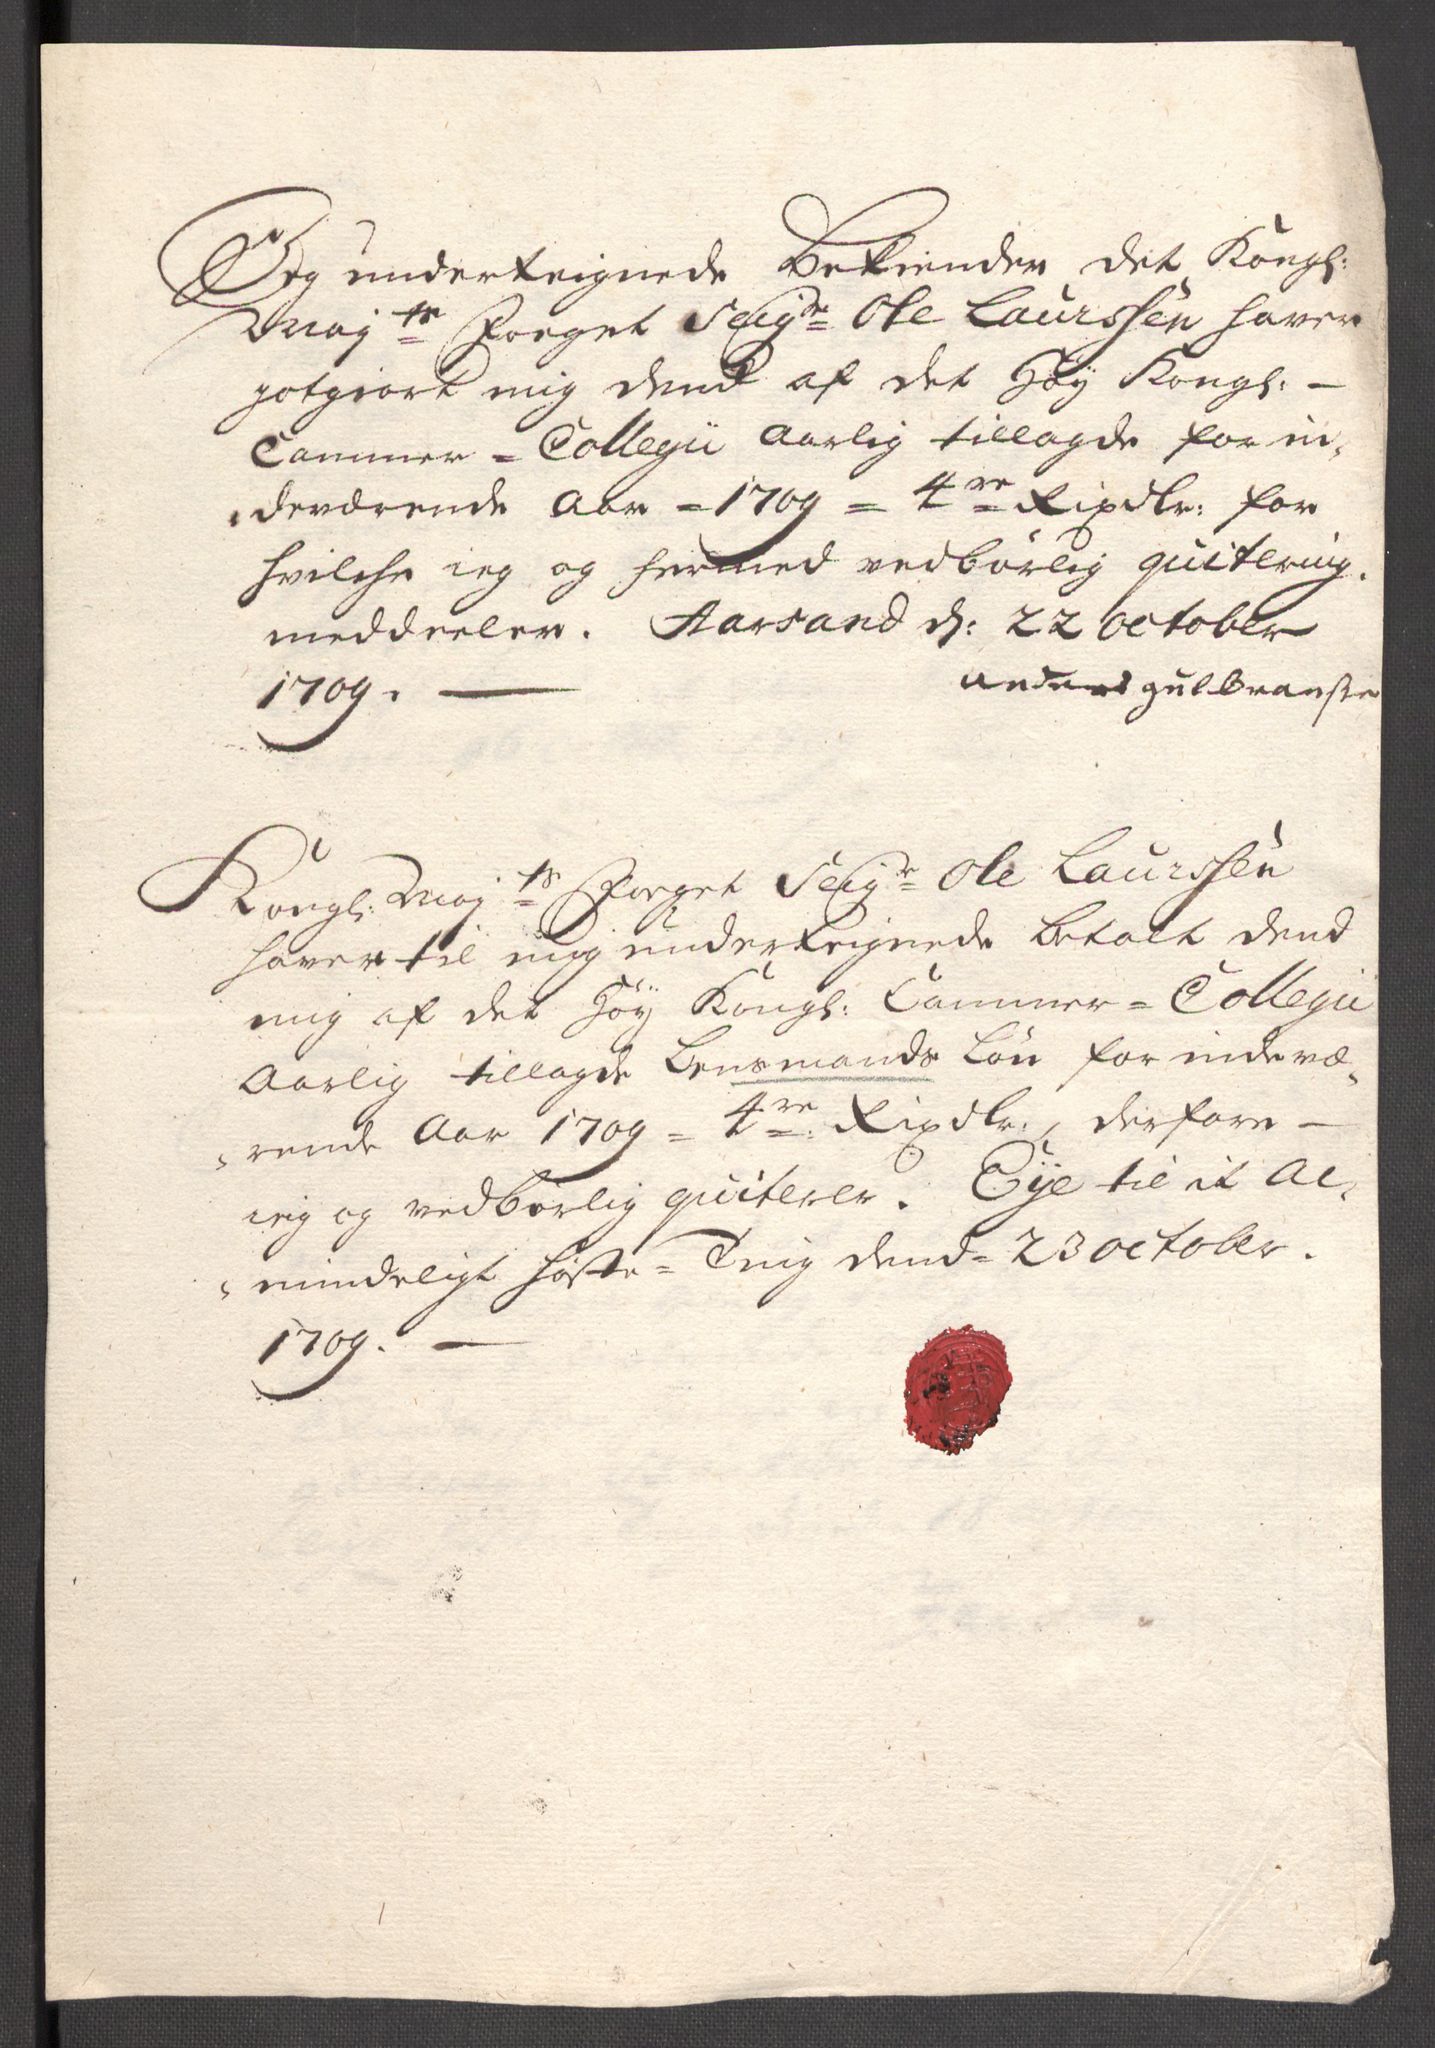 Jeg underteignede Bekiender det Kongl:
Maj.ts Foeget Seig.r Ole Laurssen haver
gotgiort mig dend af det Höÿ Kongl: -
Cammer = Collegii aarlig tillagde for in,
,deværende Aar = 1709 = 4.re Rixdlr: for
hvilche ieg og hermed vedbörlig quitering.
meddeeler. Aarsand d: 22 october
1709. —
anders gulbransen
Kongl: Maj.ts Foeget Seig.r Ole Laurssen
haver til mig underteignede betalt dend
mig af det Höÿ Kongl: Cammer = Collegii
Aarlig tillagde Lensmands Lön for indevæ,
,rende Aar 1709 = 4.re: Rixdlr:, derfore -
ieg og vedbörlig quiterer. Eÿe til it Al,
,mindeligt höste = Ting dend = 23 october.
1709. —